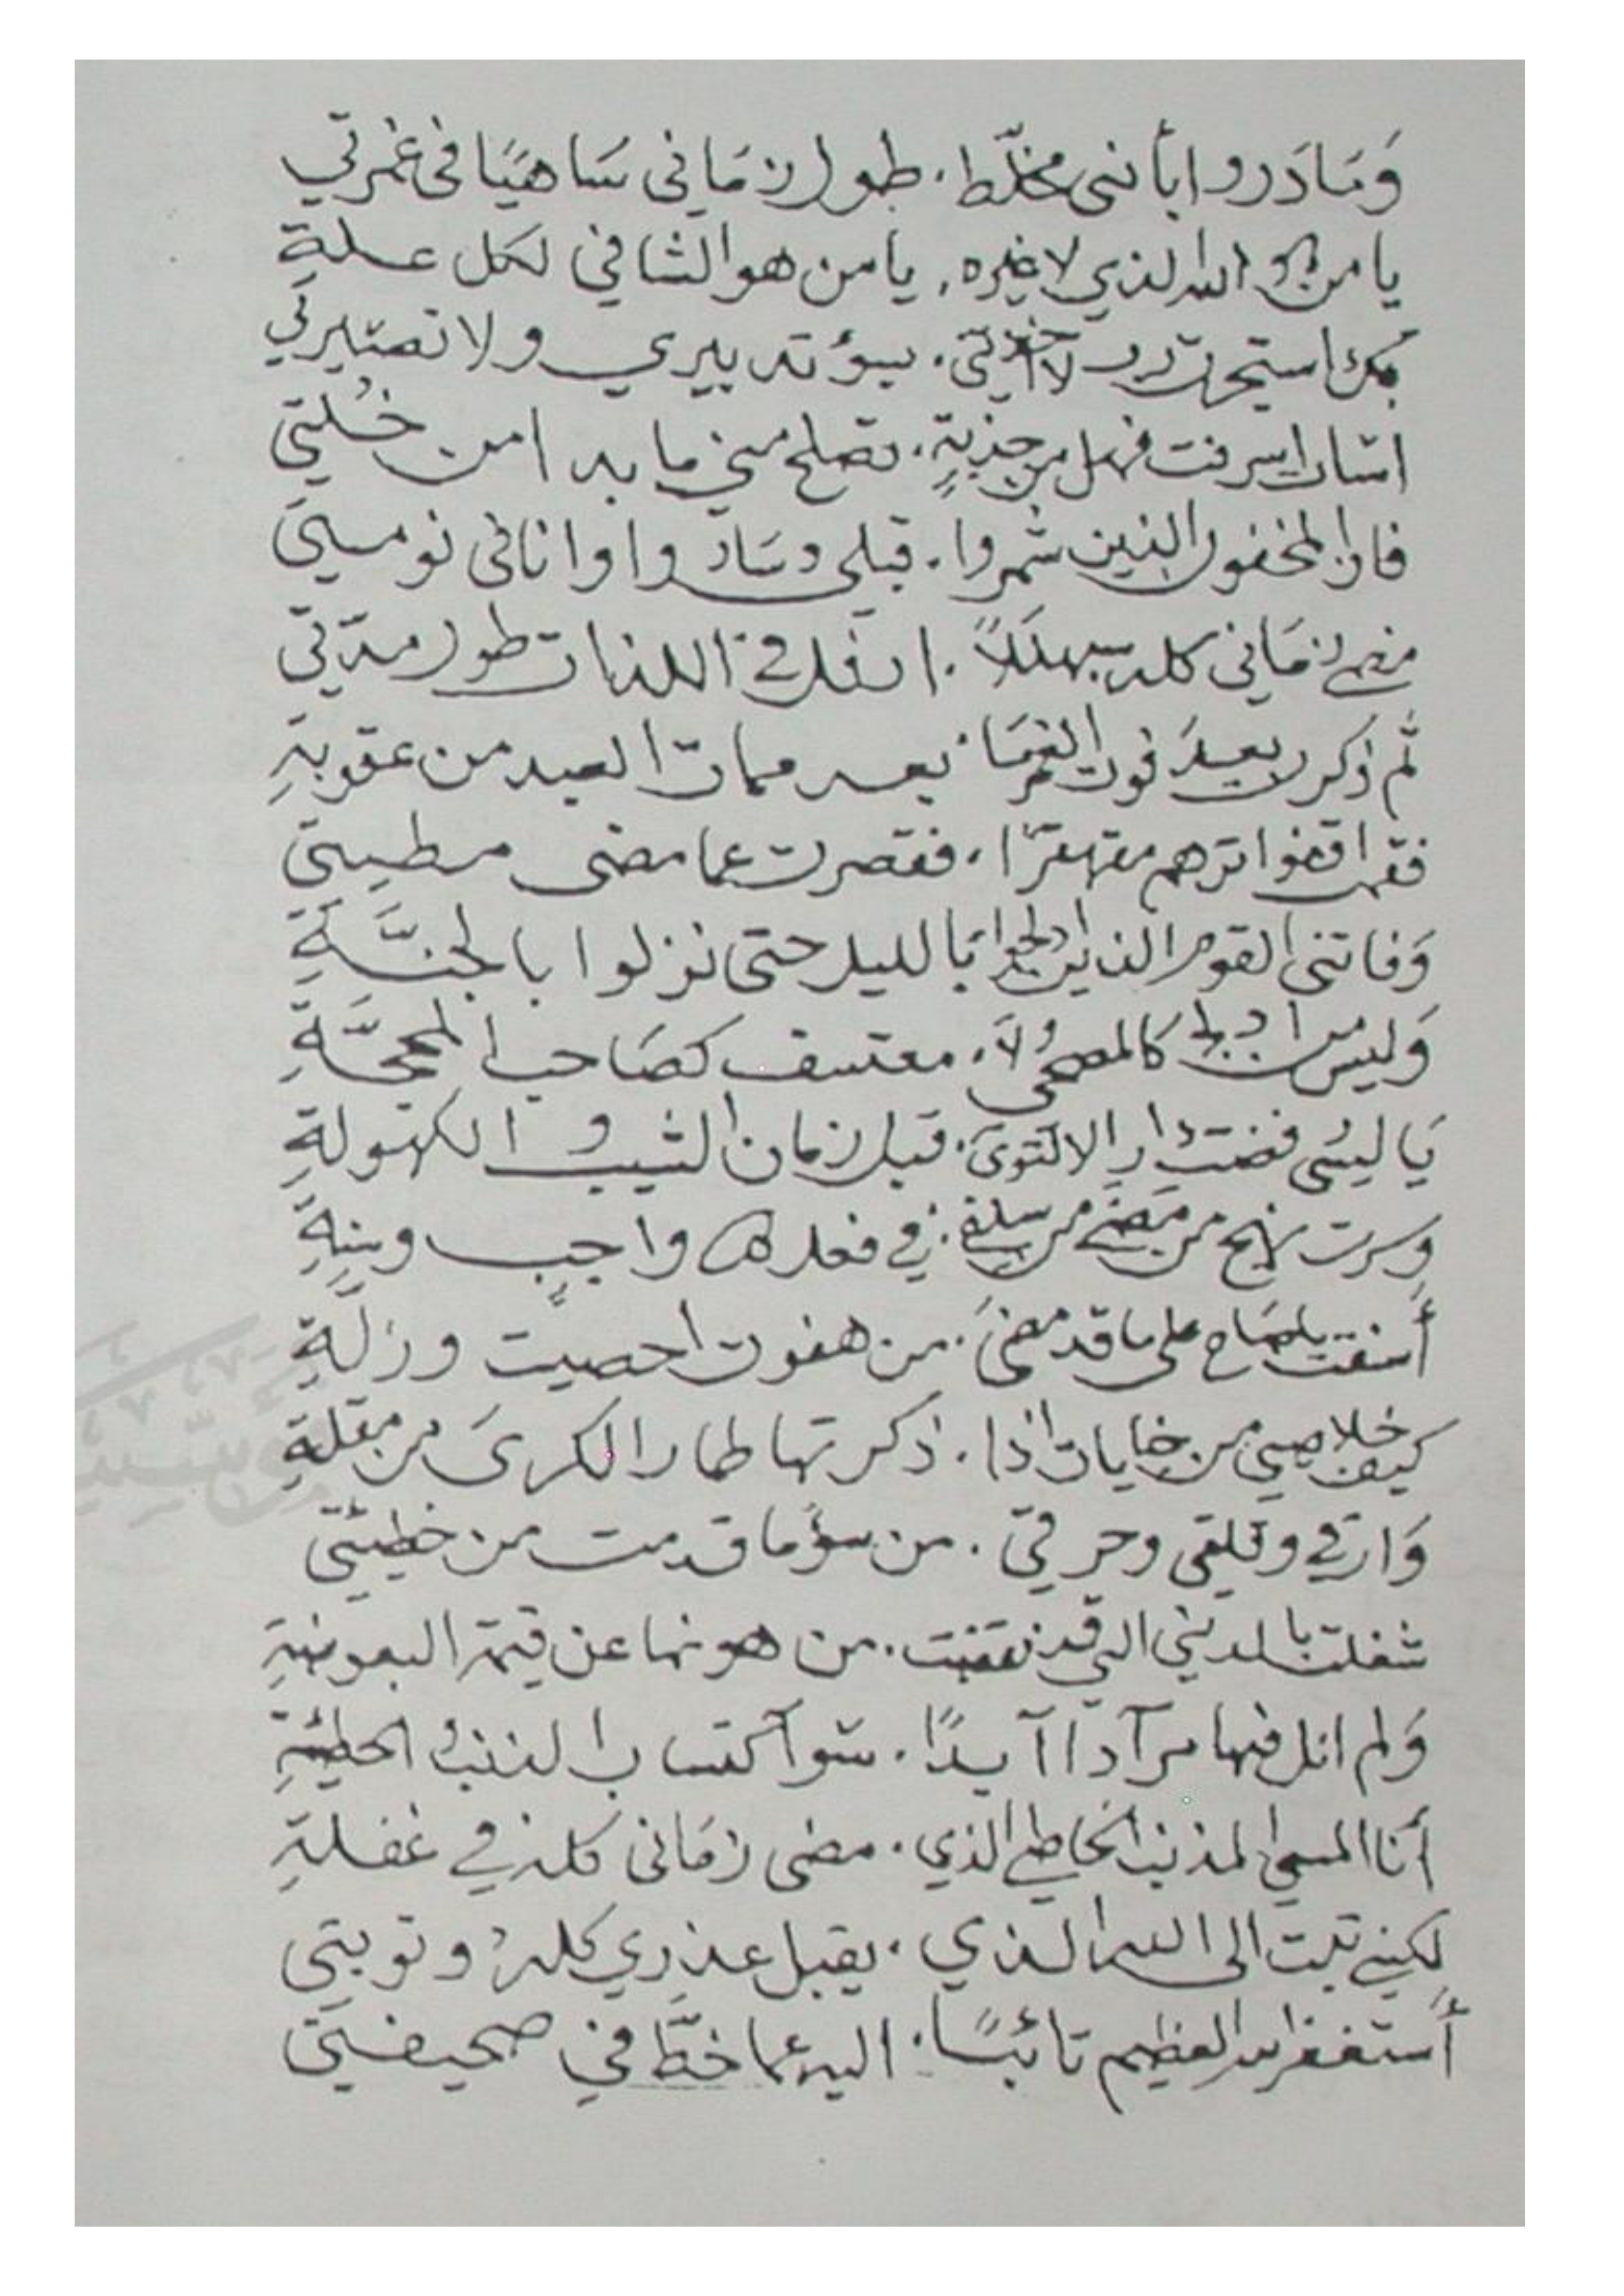 وَمَادَروا بأنني مخلّط . طول زمَاني سَاهيَا في غمرتي
يا من هو الله الذي لا غيره . يا من هو الشافي لكل علةِ
بك استجرت لا . بسؤ تدبيري ولا تصتيرتي
اسرفت فهل من جذبةٍ . تصلح مني ما بدا من خُلتي
فاز المخفون الذين شمروا . قبلي وسَادَوا وانا في نومتي
مضى زمَاني كله سبهللاً . ارفل في اللذات طول مدّتي
ثم ذكرت بعدَ فوت العُمر مَا . بعد ممات العبد من عقوبةِ
فقمت اقفوا اثرهم مقهقرًا . فقصرت عما مضى مطيتي
وَفاتني القوم الذين ادلجوا بَالليل حتى نزلوا بالجنَّةِ
وَليس من كالمصحي وُلاَ . معتسف كصَاحب المحجَّةِ
يَا ليتني . قبل زمان الشيب والكهولةِ
وسرت نهج من مضى من سلفي . في فعل واجبٍ وسنةِ
أسفت ياصَاح على ما قد مضىَ . من هفوت احصيت وزلَّةِ
كيف خلاصي من اذا . ذكرتها طار الكرىَ من مقلةِ
وَارقي وقلقي وحرقتي . من سؤما قدمت من خطيئتي
شغلت التي قد نقضت . من هونها عن قيمة البعوضةِ
وَلم انل فيها مرآداً آبدًا . سوَآ كتساب الذنب الخطيئةِ
أنا المسئ المذنب الخاطي الذي . مضى زمَاني كله في غفلةِ
لكنني تبت الى الله الذي . يقبل عذري كلهُ وتوبتي
أستغفر الله العظيم تائبًا . اليه عما خطَّ في صحيفتي